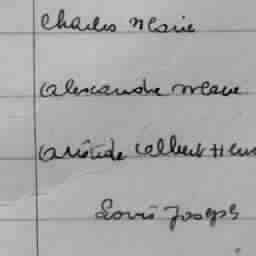 Charles Marie
Alexandre Marie
Aristide Albert Hen
Louis Joseph